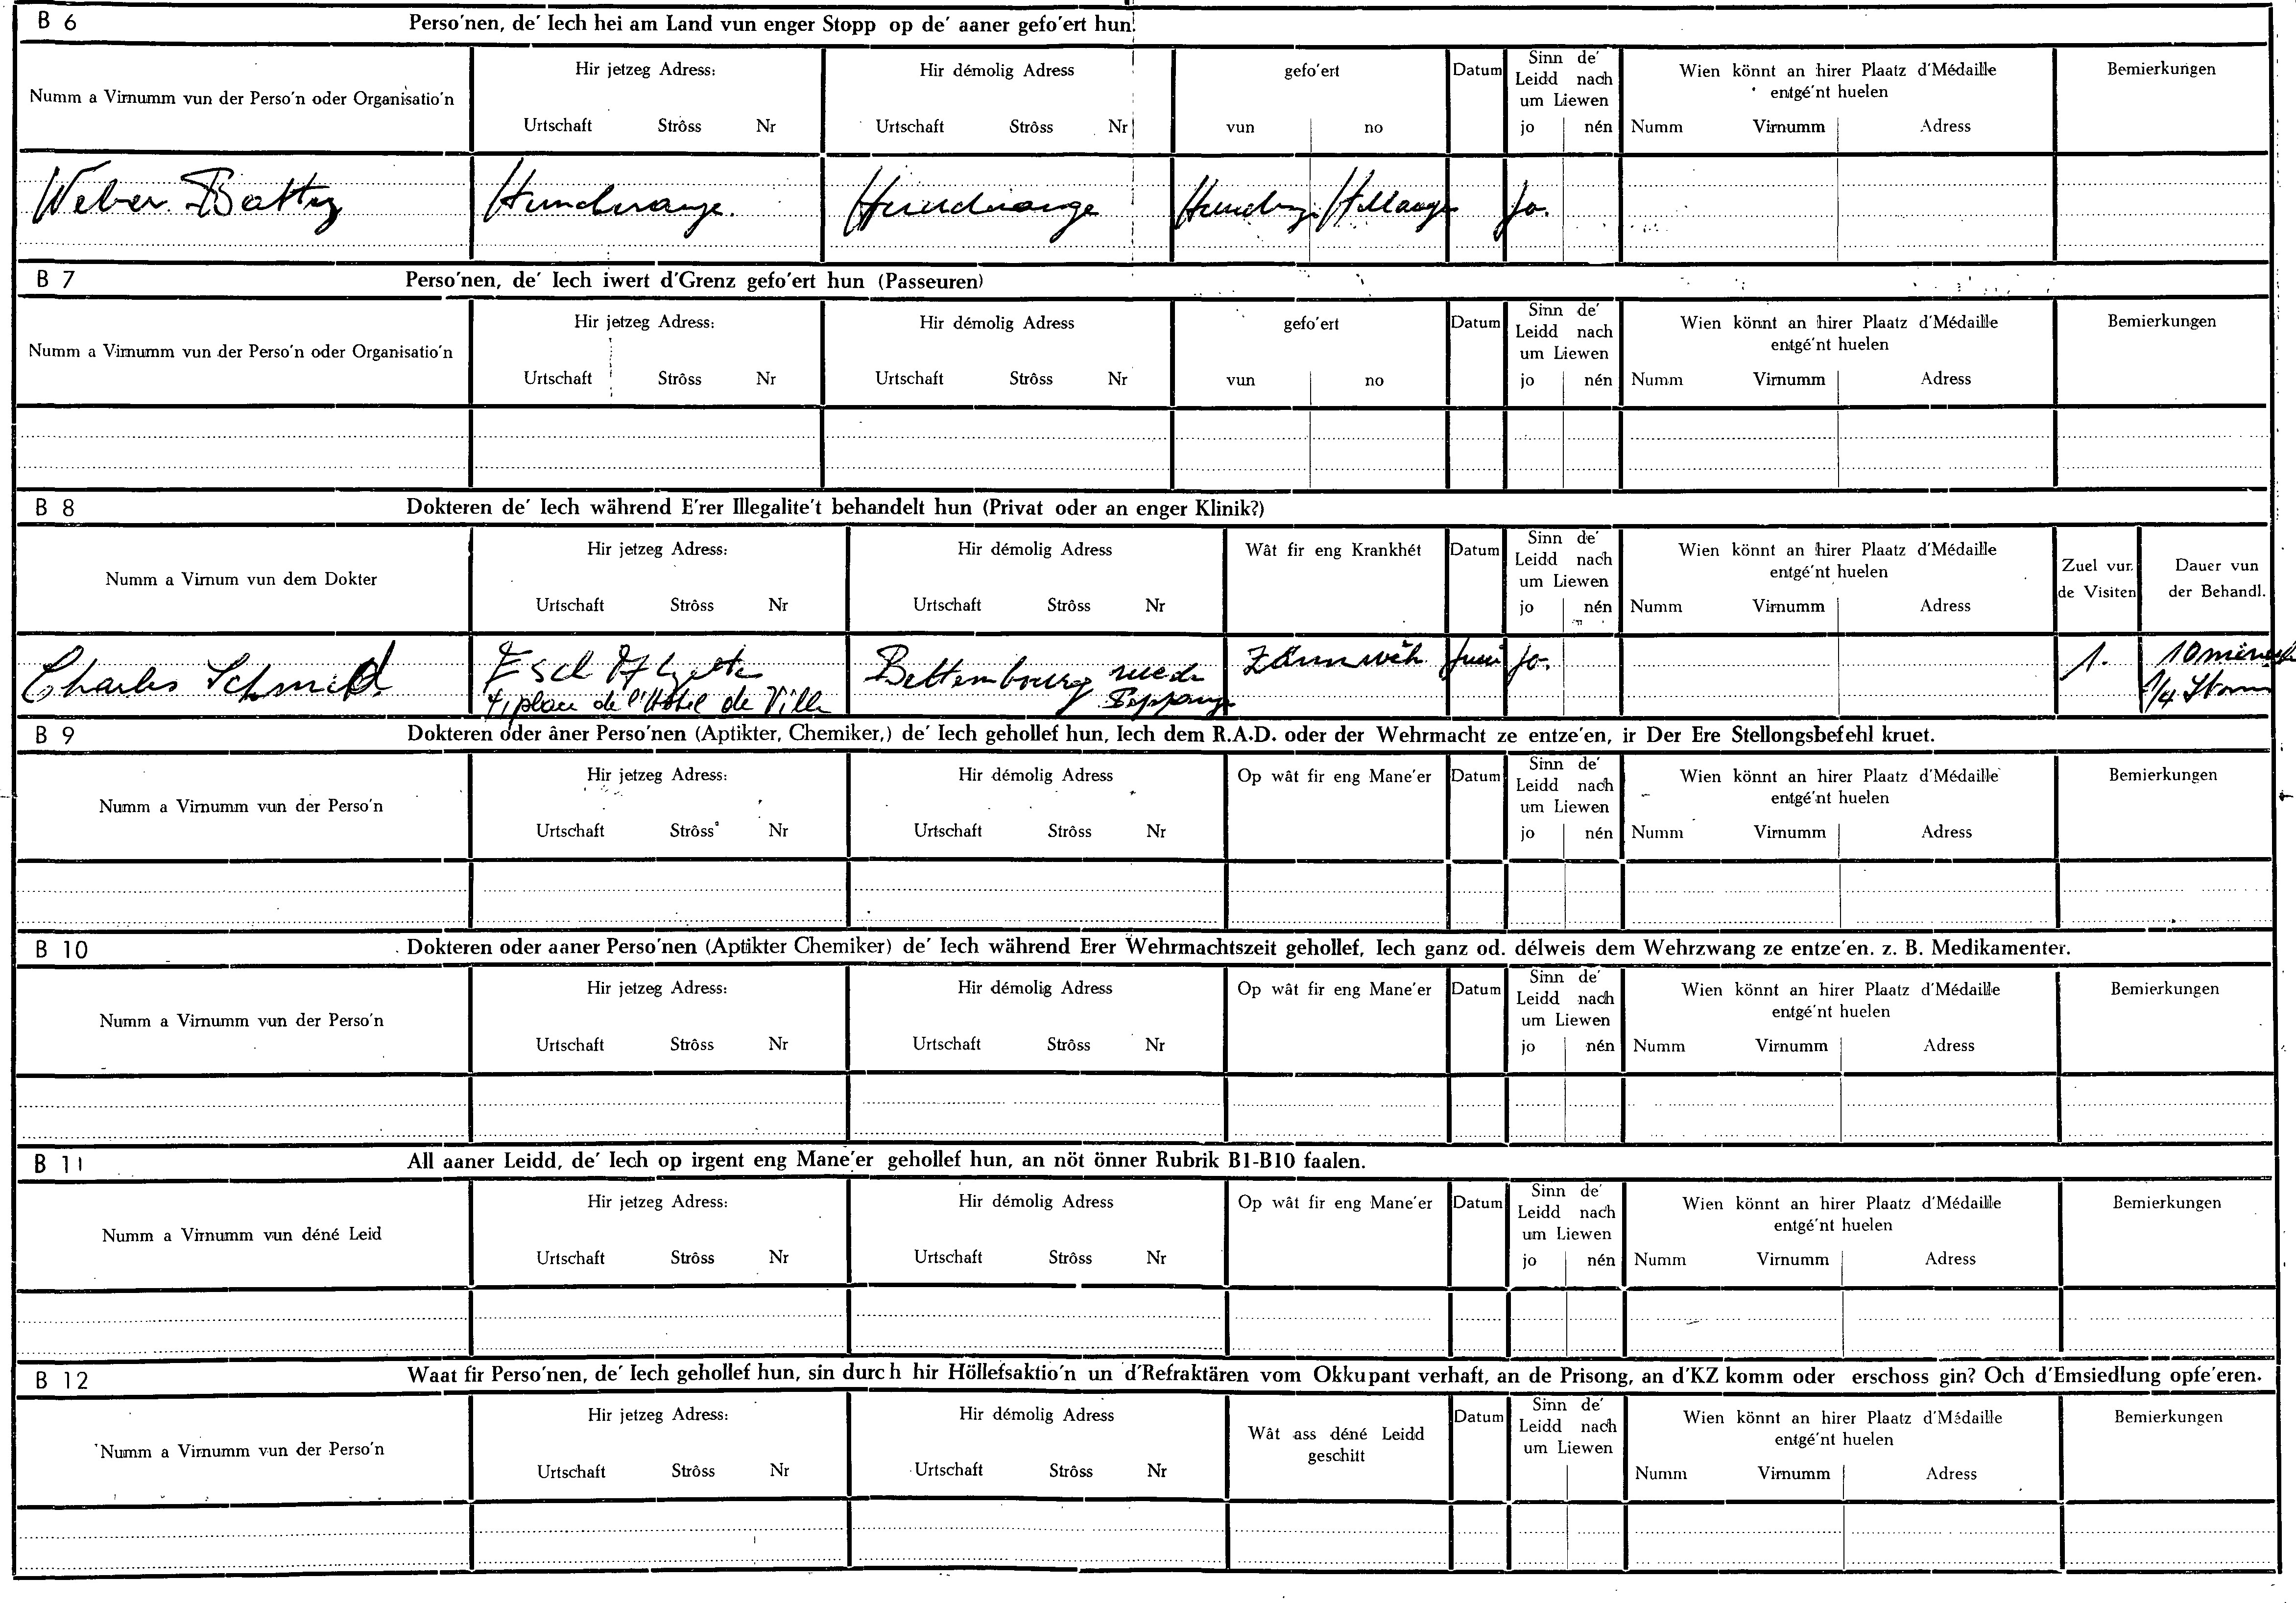 B 6 Perso'nen, de' Iech hei am Land vun enger Stopp op de' aaner gefo'ert hun.
Numm a Virnumm vun der Perso'n oder Organisatio'n
Hir jetzeg Adress:
Urtschaft Strôss Nr
Hir démolig Adress
Urtschaft Strôss Nr
gefo'ert
vun no
Datum
Sinn de'
Leidd nach
um Liewen
jo nén
Wien könnt an hirer Plaatz d'Médaille
entgé'nt huelen
Numm Virnumm Adress
Bemierkungen
Weber Batty Jo.
B 7 Perso'nen, de' Iech iwert d'Grenz gefo'ert hun (Passeuren)
Numm a Virnumm vun der Perso'n oder Organisatio'n
Hir jetzeg Adress:
Urtschaft Strôss Nr
Hir démolig Adress
Urtschaft Strôss Nr
gefo'ert
vun no
Datum
Sinn de'
Leidd nach
um Liewen
jo nén
Wien könnt an hirer Plaatz d'Médaille
entgé'nt huelen
Numm Virnumm Adress
Bemierkungen
B 8 Dokteren de' Iech während E'rer Illegalite't behandelt hun (Privat oder an enger Klinik?)
Numm a Virnum vun dem Dokter
Hir jetzeg Adress:
Urtschaft Strôss Nr
Hir démolig Adress
Urtschaft Strôss Nr
Wât fir eng Krankhét
Datum
Sinn de'
Leidd nach
um Liewen
jo nén
Wien könnt an hirer Plaatz d'Médaille
entgé'nt huelen
Numm Virnumm Adress
Zuel vun
de Visiten
Dauer vun
der Behandl.
Charles Schmit
4, place de l'Hôtel de Ville
Bettembourg
Zännwéh Juni Jo. 1.
1/4 Stonn
B 9 Dokteren oder âner Perso'nen (Aptikter, Chemiker,) de' Iech gehollef hun, Iech dem R.A.D. oder der Wehrmacht ze entze'en, ir Der Ere Stellongsbefehl kruet.
Numm a Virnumm vun der Perso'n
Hir jetzeg Adress:
Urtschaft Strôss Nr
Hir démolig Adress
Urtschaft Strôss Nr
Op wât fir eng Mane'er
Datum
Sinn de'
Leidd nach
um Liewen
jo nén
Wien könnt an hirer Plaatz d'Médaille
entgé'nt huelen
Numm Virnumm Adress
Bemierkungen
B 10 Dokteren oder aaner Perso'nen (Aptikter Chemiker) de' Iech während Erer Wehrmachtszeit gehollef, Iech ganz od. délweis dem Wehrzwang ze entze'en. z. B. Medikamenter.
Numm a Virnumm vun der Perso'n
Hir jetzeg Adress:
Urtschaft Strôss Nr
Hir démolig Adress
Urtschaft Strôss Nr
Op wât fir eng Mane'er
Datum
Sinn de'
Leidd nach
um Liewen
jo nén
Wien könnt an hirer Plaatz d'Médaille
entgé'nt huelen
Numm Virnumm Adress
Bemierkungen
B 11 All aaner Leidd, de' Iech op irgent eng Mane'er gehollef hun, an nöt önner Rubrik B1-B10 faalen.
Numm a Virnumm vun déné Leid
Hir jetzeg Adress:
Urtschaft Strôss Nr
Hir démolig Adress
Urtschaft Strôss Nr
Op wât fir eng Mane'er
Datum
Sinn de'
Leidd nach
um Liewen
jo nén
Wien könnt an hirer Plaatz d'Médaille
entgé'nt huelen
Numm Virnumm Adress
Bemierkungen
B 12 Waat fir Perso'nen, de' Iech gehollef hun, sin durch hir Höllefsaktio'n un d'Refraktären vom Okkupant verhaft, an de Prisong, an d'KZ komm oder erschoss gin? Och d'Emsiedlung opfe'eren.
Numm a Virnumm vun der Perso'n
Hir jetzeg Adress:
Urtschaft Strôss Nr
Hir démolig Adress
Urtschaft Strôss Nr
Wât ass déné Leidd
geschitt
Datum
Sinn de'
Leidd nach
um Liewen
Wien könnt an hirer Plaatz d'Médaille
entgé'nt huelen
Numm Virnumm Adress
Bemierkungen